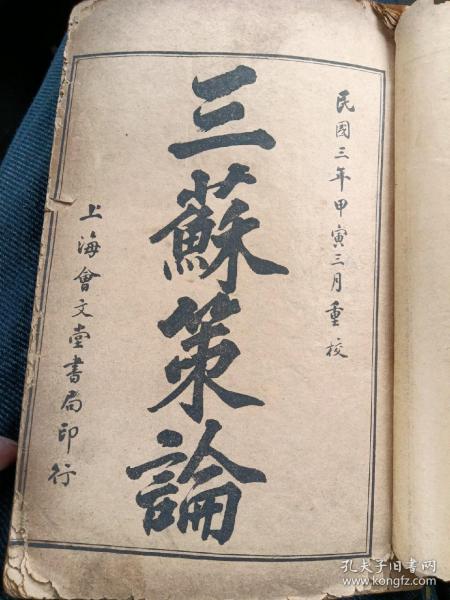 民國三年甲寅三月重校
三蘇策論
上海會文堂書局印行
孔夫子旧书网
www.kongfz.com